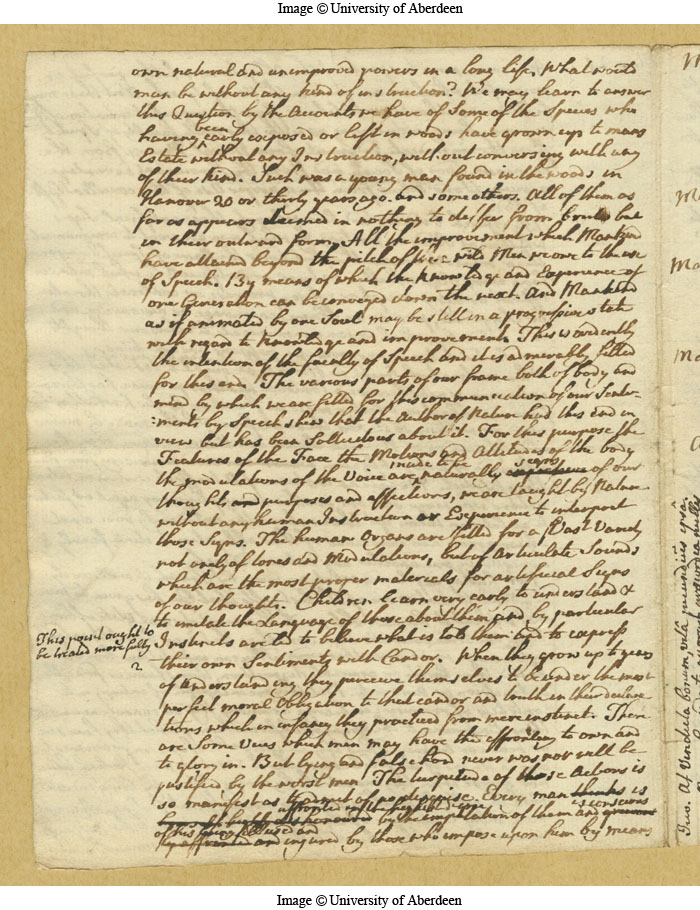 Image © University of Aberdeen
own natural and unimproved powers in a long life. What would
man be without any kind of instruction? We may learn to answer
this Question by the Accounts we have of Some of the Species who
having been early exposed or left in woods have grown up to mans
Estate without any Instruction, without conversing with any
of their kind. Such was a young man found in the woods in
Hanover 20 or thirty years ago. and some others. All of them as
far as appears seemed in nothing to differ from brutes but
in their outward form. All the improvement which Mankind
have attained beyond the pitch of these wild Men we owe to the use
of Speech. By means of which the Knowledge and Experience of
one Generation can be conveyed down the next. And Mankind
as if animated by one Soul may be still in a progressive state
with regard to Knowledge and improvement. This is evidently
the intention of the faculty of Speech and it is admirably fitted
for this end. The various parts of our frame both of body and
mind by which we are fitted for this communication of our Senti-
:ments by Speech shew that the Author of Nature had this End in
view but has been Sollicitous about it. For this purpose the
Features of the Face the Motions and Attitudes of the body
the modulations of the Voice are made to be naturally signs of our
thoughts and purposes and affections, we are taught by Nature
without any human Instruction or Experience to interpret
those Signs. The human Organs are fitted for a Vast Variety
not only of tones and Modulations, but of Articulate Sounds
which are the most proper materials for artificial Signs
of our thoughts. Children learn very early to understand &
to imitate the Language of those about them, and by particular
This point ought to
be treated more fully
2
Instincts are led to believe what is told them and to express
their own Sentiments with Candor. When they grow up to years
of Understanding they perceive themselves to be under the most
perfect moral Obligation to that candor and truth in their declara
tions which in infancy they practiced from mere instinct. There
are Some Vices which men may have the effrontery to own and
to glory in. But lying and falsehood never was nor will be
justified by the worst men. The turpitude of those Actions is
so manifest as to admit of no disguise. Every man thinks is
affronted and dishonoured by the imputation of them and is conscious
of his being abused and
injured by those who impose upon him by means
Jus. At Vindicta bonum, vita jucundius ipsa.
Image © University of Aberdeen